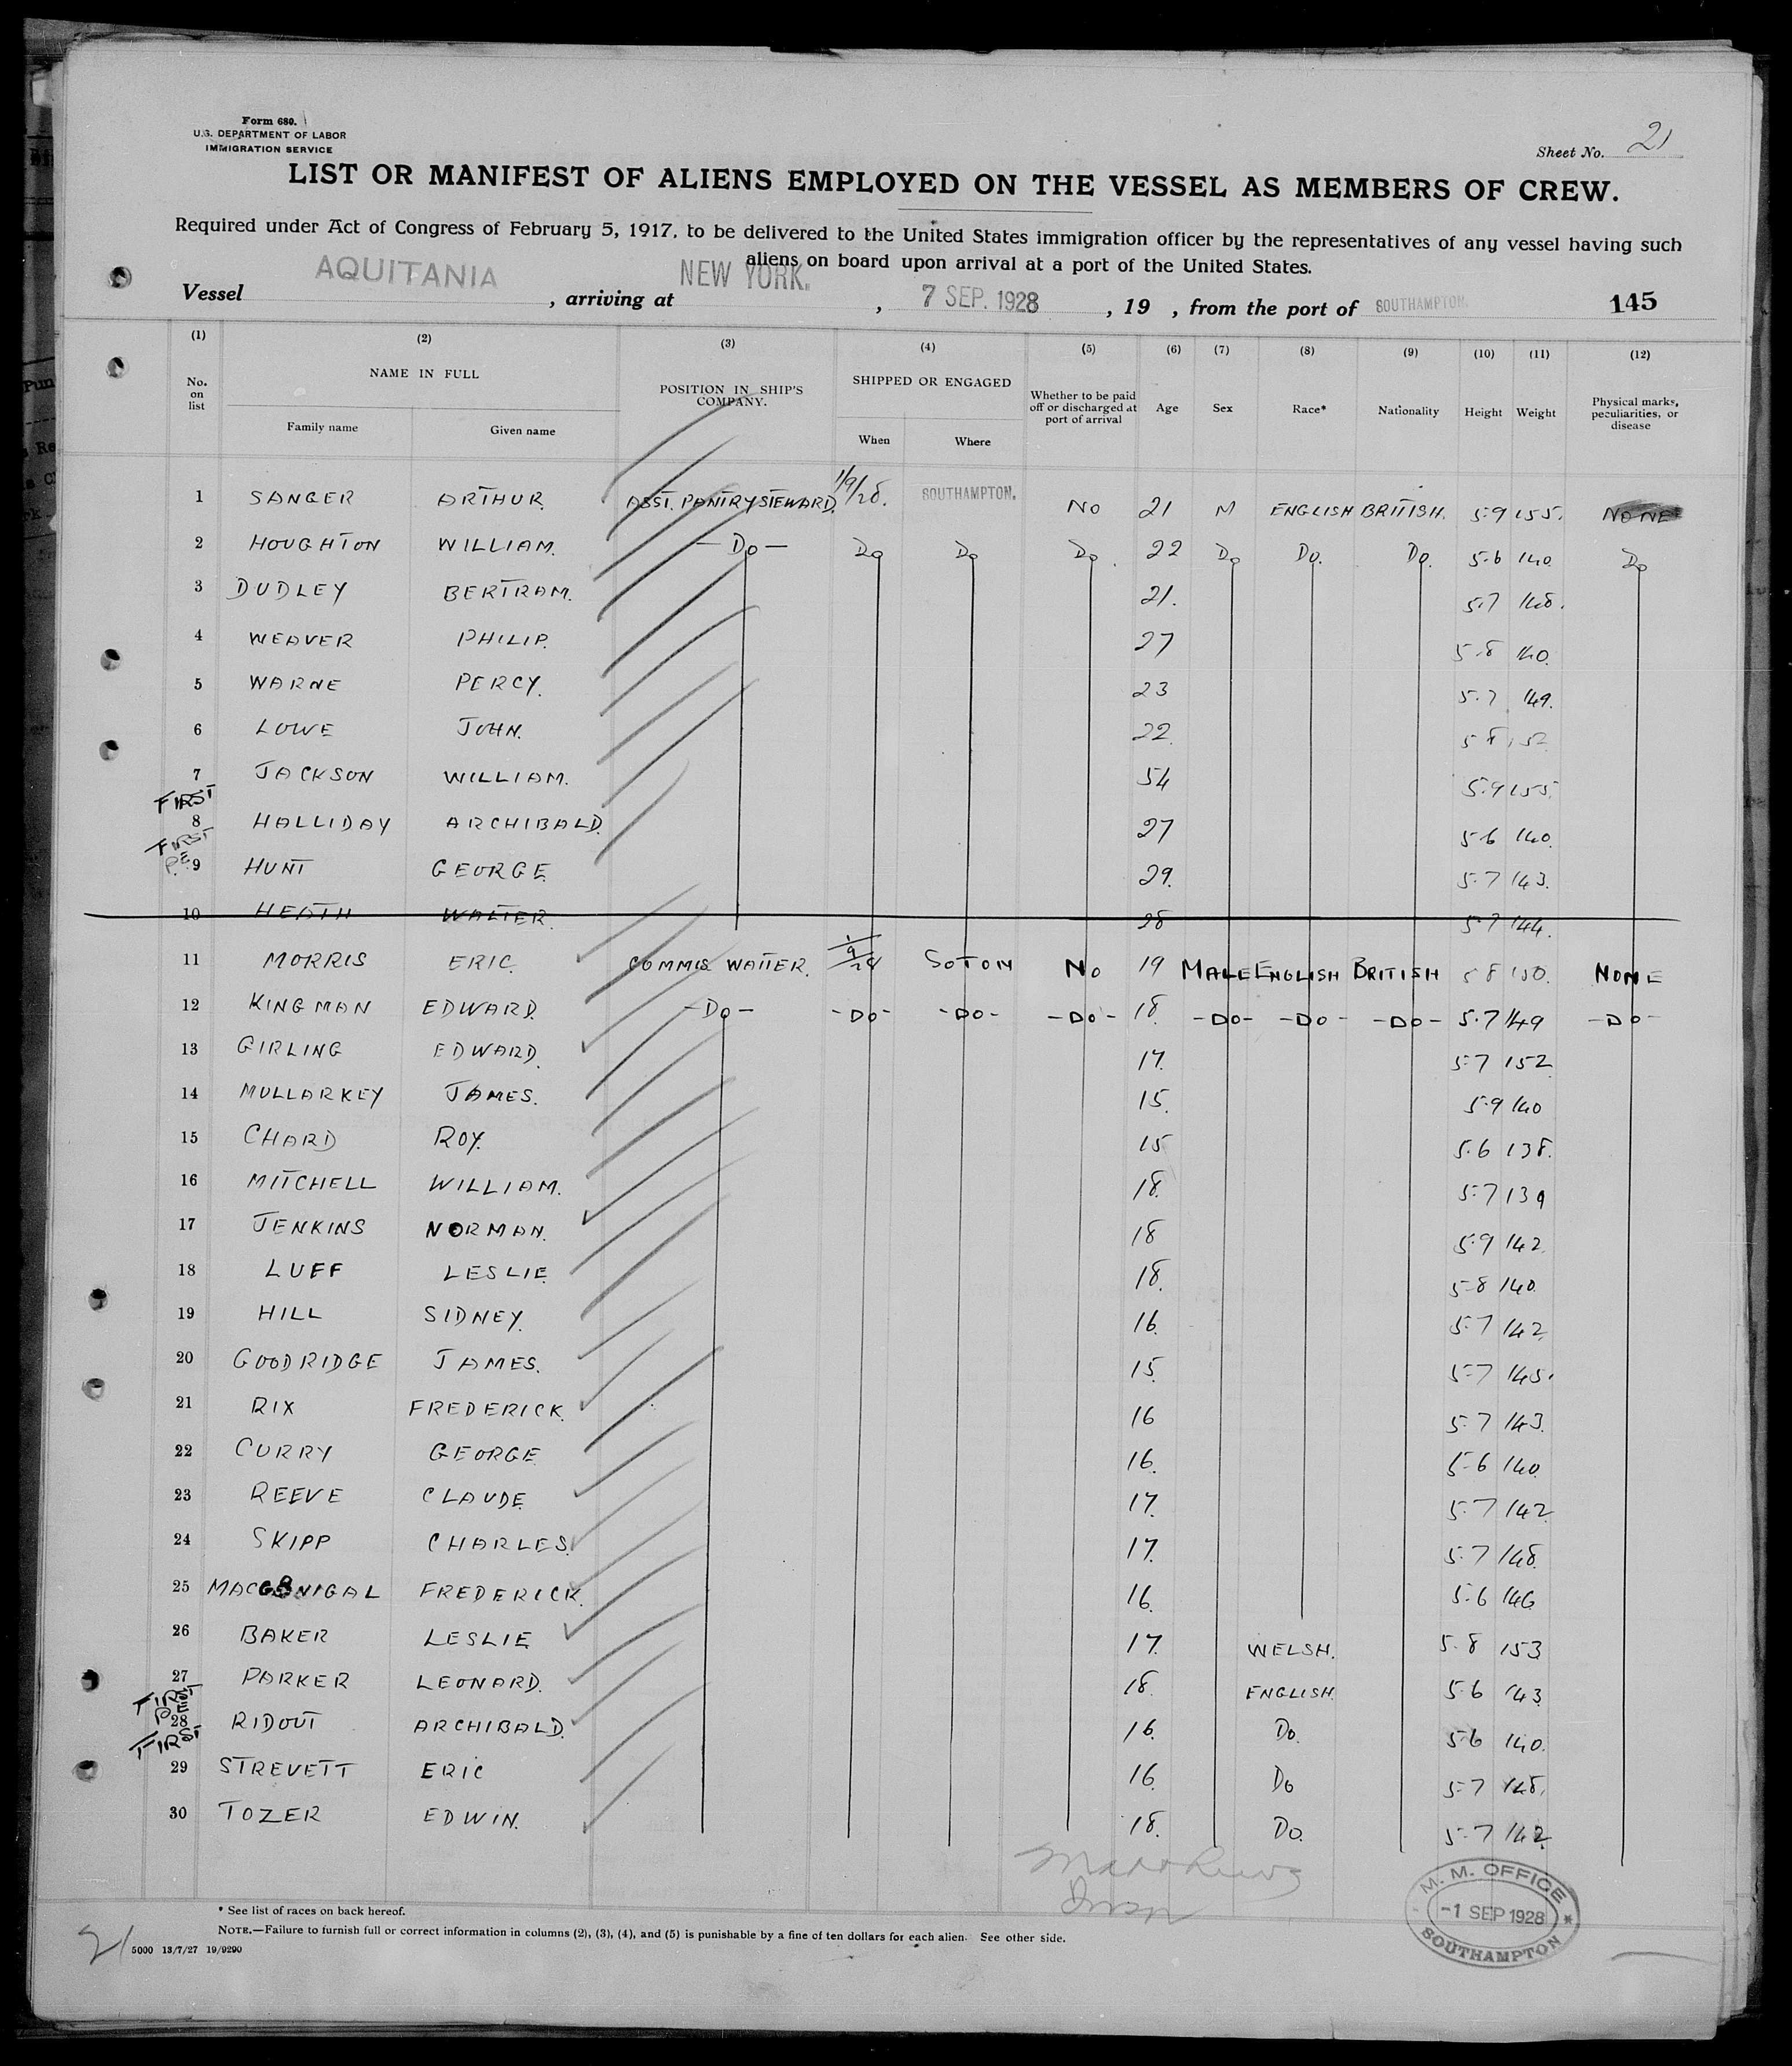 Form 680.
U.S. DEPARTMENT OF LABOR
IMMIGRATION SERVICE
Sheet No. 21
LIST OR MANIFEST OF ALIENS EMPLOYED ON THE VESSEL AS MEMBERS OF CREW.
Required under Act of Congress of February 5, 1917, to be delivered to the United States immigration officer by the representatives of any vessel having such
aliens on board upon arrival at a port of the United States.
Vessel AQUITANIA, arriving at NEW YORK., 7 SEP. 1928, 19 , from the port of SOUTHAMPTON. 145
(1) (2) (3) (4) (5) (6) (7) (8) (9) (10) (11) (12)
No. on list NAME IN FULL Family name Given name POSITION IN SHIP'S COMPANY. SHIPPED OR ENGAGED When Where Whether to be paid off or discharged at port of arrival Age Sex Race* Nationality Height Weight Physical marks, peculiarities, or disease
1 SANGER ARTHUR. ASST. PANTRY STEWARD. 1/9/28. SOUTHAMPTON. NO 21 M ENGLISH BRITISH. 5.9 155. NONE
2 HOUGHTON WILLIAM. -Do- Do Do Do. 22 Do Do. Do. 5.6 140. Do
3 DUDLEY BERTRAM. 21. 5.7 148.
4 WEAVER PHILIP. 27 5.8 140.
5 WARNE PERCY. 23 5.7 149.
6 LOWE JOHN. 22. 5 8 152
7 JACKSON WILLIAM. 54 5.9 155.
FIRST
8 HALLIDAY ARCHIBALD. 27 5.6 140.
FIRST
9 HUNT GEORGE. 29. 5.7 143.
10 HEATH WALTER. 28 5.7 144.
11 MORRIS ERIC. COMMIS WAITER. 1/9/28 SOTON NO 19 MALE ENGLISH BRITISH 5 8 150. NONE
12 KINGMAN EDWARD. -Do- -DO- -DO- -DO- 18. -DO- -DO- -DO- 5.7 149 -DO-
13 GIRLING EDWARD. 17. 5.7 152
14 MULLARKEY JAMES. 15. 5.9 140
15 CHARD ROY. 15 5.6 138.
16 MITCHELL WILLIAM. 18. 5.7 139
17 JENKINS NORMAN. 18 5.9 142.
18 LUFF LESLIE. 18. 5-8 140.
19 HILL SIDNEY. 16. 5.7 142.
20 GOODRIDGE JAMES. 15. 5.7 145.
21 RIX FREDERICK. 16 5.7 143.
22 CURRY GEORGE. 16. 5.6 140.
23 REEVE CLAUDE. 17. 5.7 142.
24 SKIPP CHARLES. 17. 5.7 148.
25 MACGONIGAL FREDERICK. 16. 5.6 146
26 BAKER LESLIE. 17. WELSH. 5.8 153
27 PARKER LEONARD. 18. ENGLISH. 5.6 143
28 RIDOUT ARCHIBALD. 16. Do. 5.6 140.
FIRST
29 STREVETT ERIC 16. Do 5.7 148.
30 TOZER EDWIN. 18. Do. 5.7 142.
M. M. OFFICE
-1 SEP 1928
SOUTHAMPTON
* See list of races on back hereof.
NOTE.—Failure to furnish full or correct information in columns (2), (3), (4), and (5) is punishable by a fine of ten dollars for each alien. See other side.
21 5000 13/7/27 19/9290